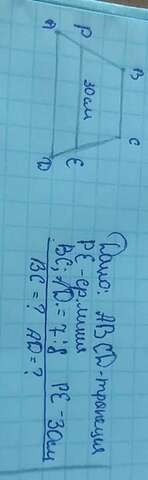 A
P
B
30см
C
E
D
Дано: ABCD-трапеция
PE-ср.линия
BC:AD.=7:8 PE-30см
BC=? AD=?